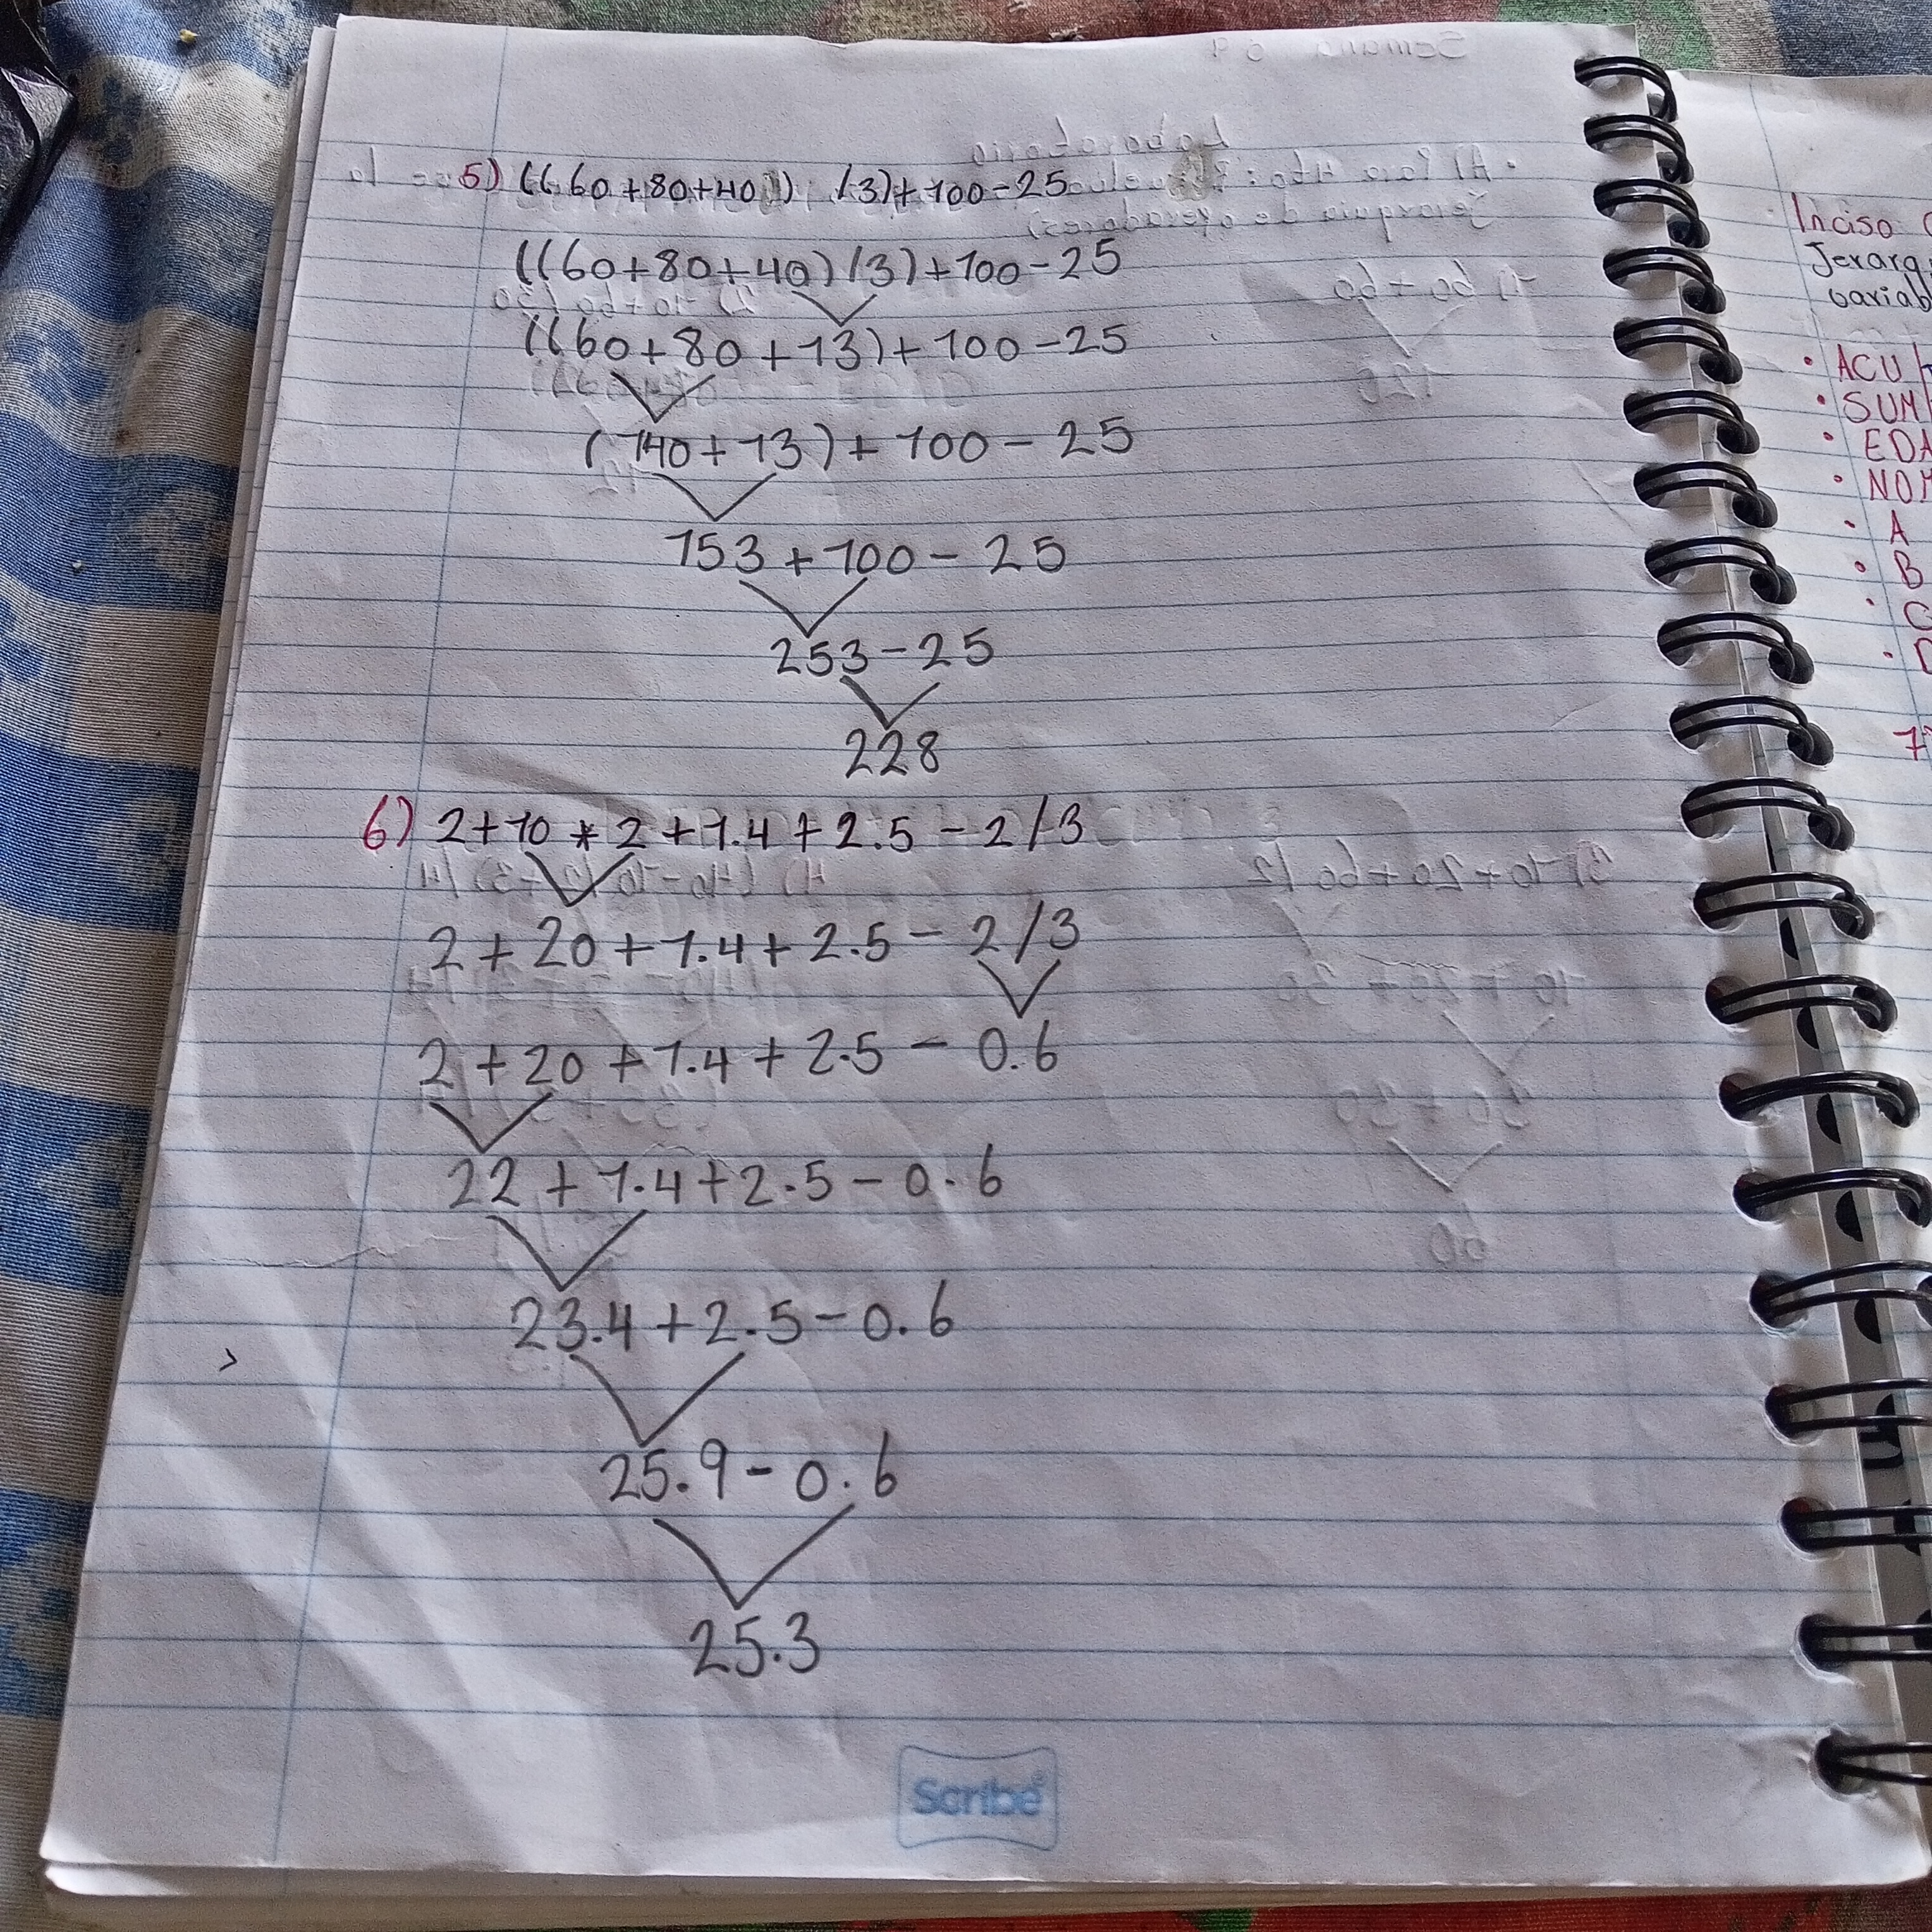 5) ((60+80+40) /3)+100-25
((60+80+40)/3)+100-25
((60+80+13)+100-25
(140+13)+100-25
153+100-25
253-25
228
6) 2+10*2+1.4+2.5-2/3
2+20+1.4+2.5-2/3
2+20+1.4+2.5-0.6
22+1.4+2.5-0.6
23.4+2.5-0.6
25.9-0.6
25.3
Scribe
Inciso
Jerarq
variab
• ACU
• SUM
• EDA
• NOM
• A
• B
• C